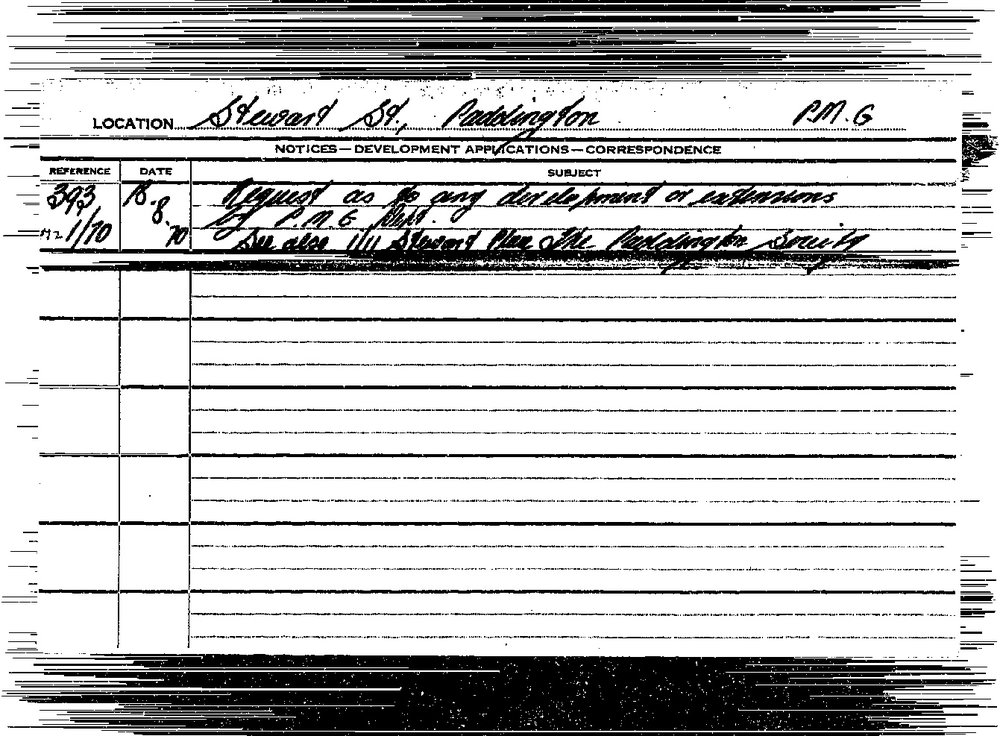 LOCATION Stewart St, Paddington P.M.G
NOTICES—DEVELOPMENT APPLICATIONS—CORRESPONDENCE
REFERENCE DATE SUBJECT
393 18. Request as to any development or extensions
8. by P.M.G Dept.
1/70 70 See also Stewart Place The Paddington Society